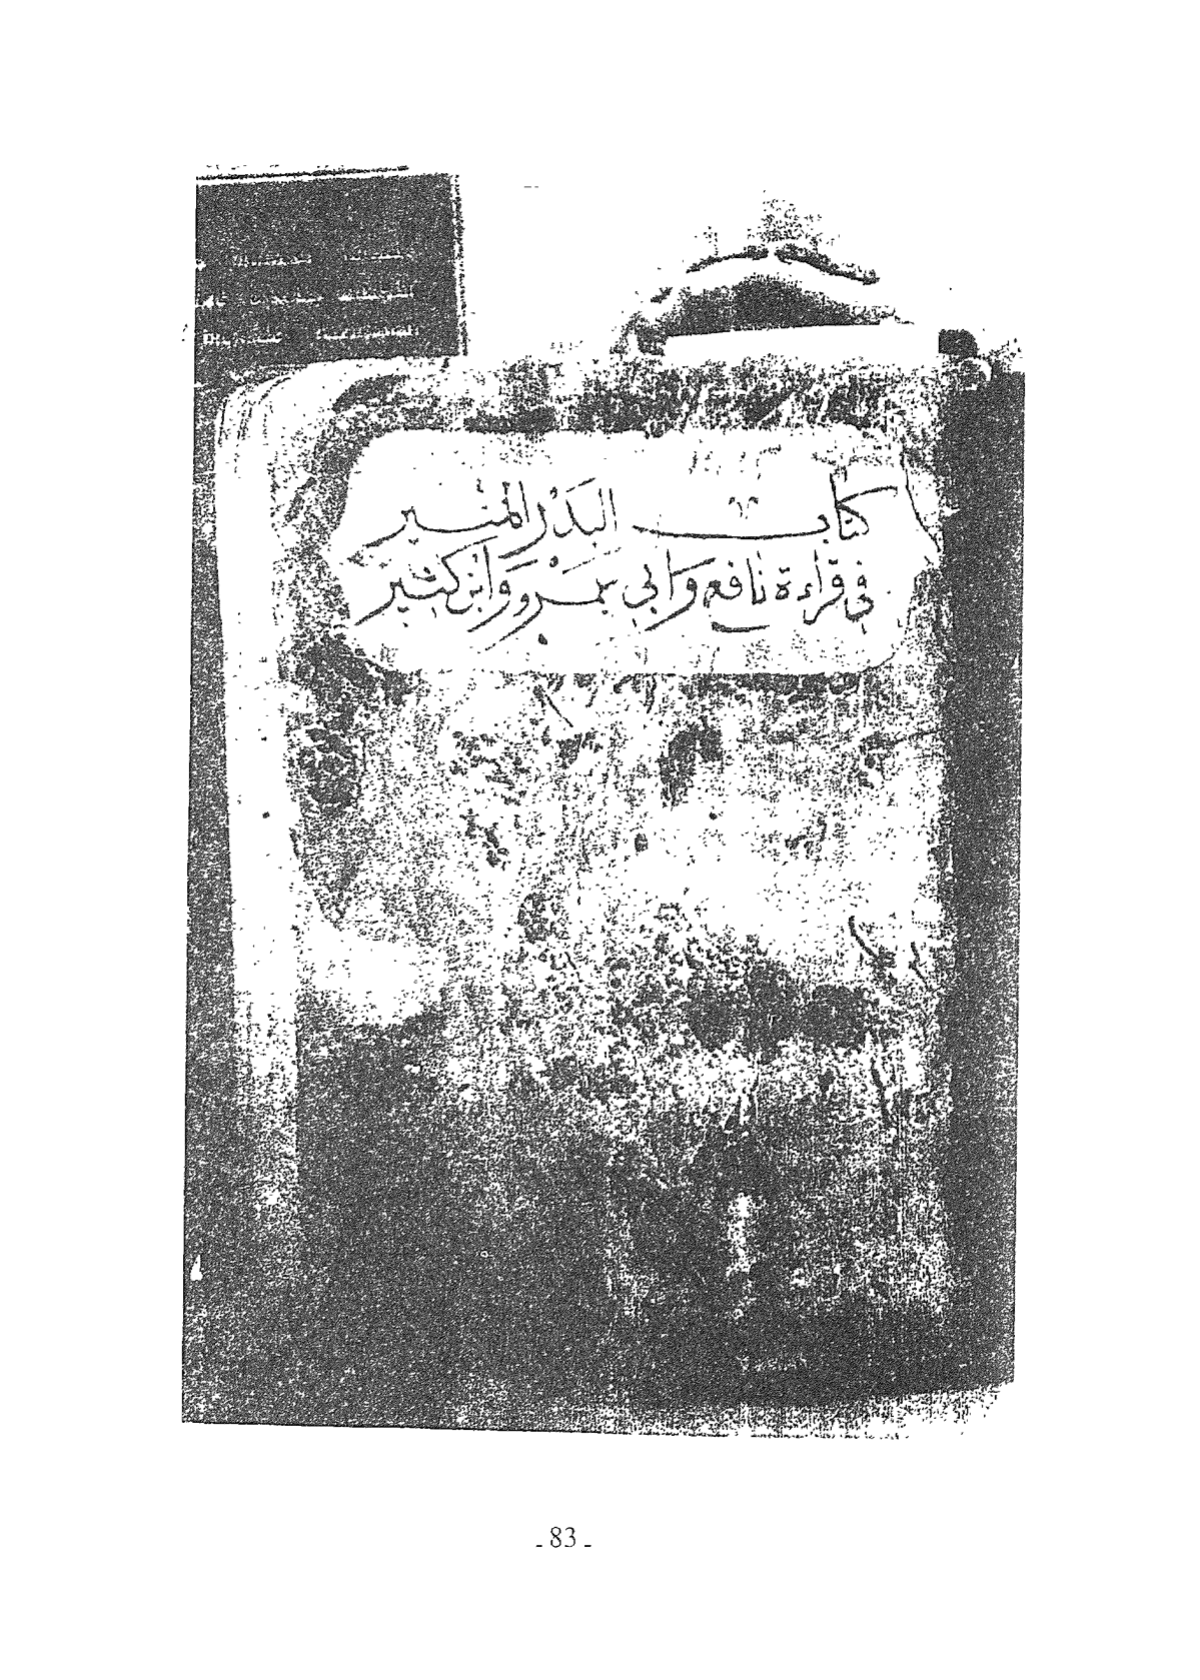 كتاب البَدْر المنير
في قراءة نافع وَابي عمْرو وَابْن كثير
- 83 -